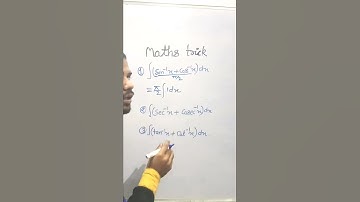 Maths trick
① ∫(sin⁻¹x + cos⁻¹x)dx
π/2
= π/2 ∫1dx
② ∫(sec⁻¹x + cosec⁻¹x)dx
③ ∫(tan⁻¹x + cot⁻¹x)dx